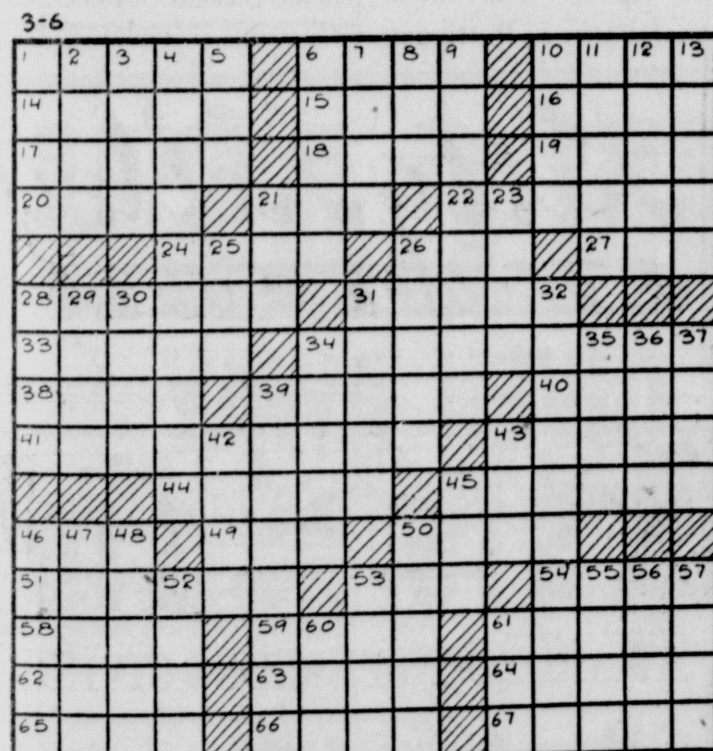 3-6
1 2 3 4 5 6 7 8 9 10 11 12 13
14 15 16
17 18 19
20 21 22 23
24 25 26 27
28 29 30 31 32
33 34 35 36 37
38 39 40
41 42 43
44 45
46 47 48 49 50
51 52 53 54 55 56 57
58 59 60 61
62 63 64
65 66 67